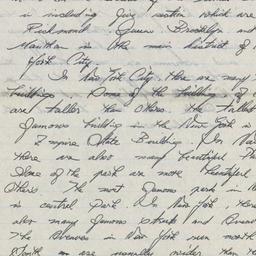 in including five section which are
Richmond, Queen Brooklyn and
Manhattan is the main district of
York City.
In New York City, there are many
buildings. Some of the building of
are taller than others. The tallest
famous building in the New York is
Empire State Building. In New
there are also many beautiful
Some of the park are more beautiful
others. The most famous park in N
is central Park. In New York, there
also many famous streets and
The Avenues in New York run north
South are usually wider than